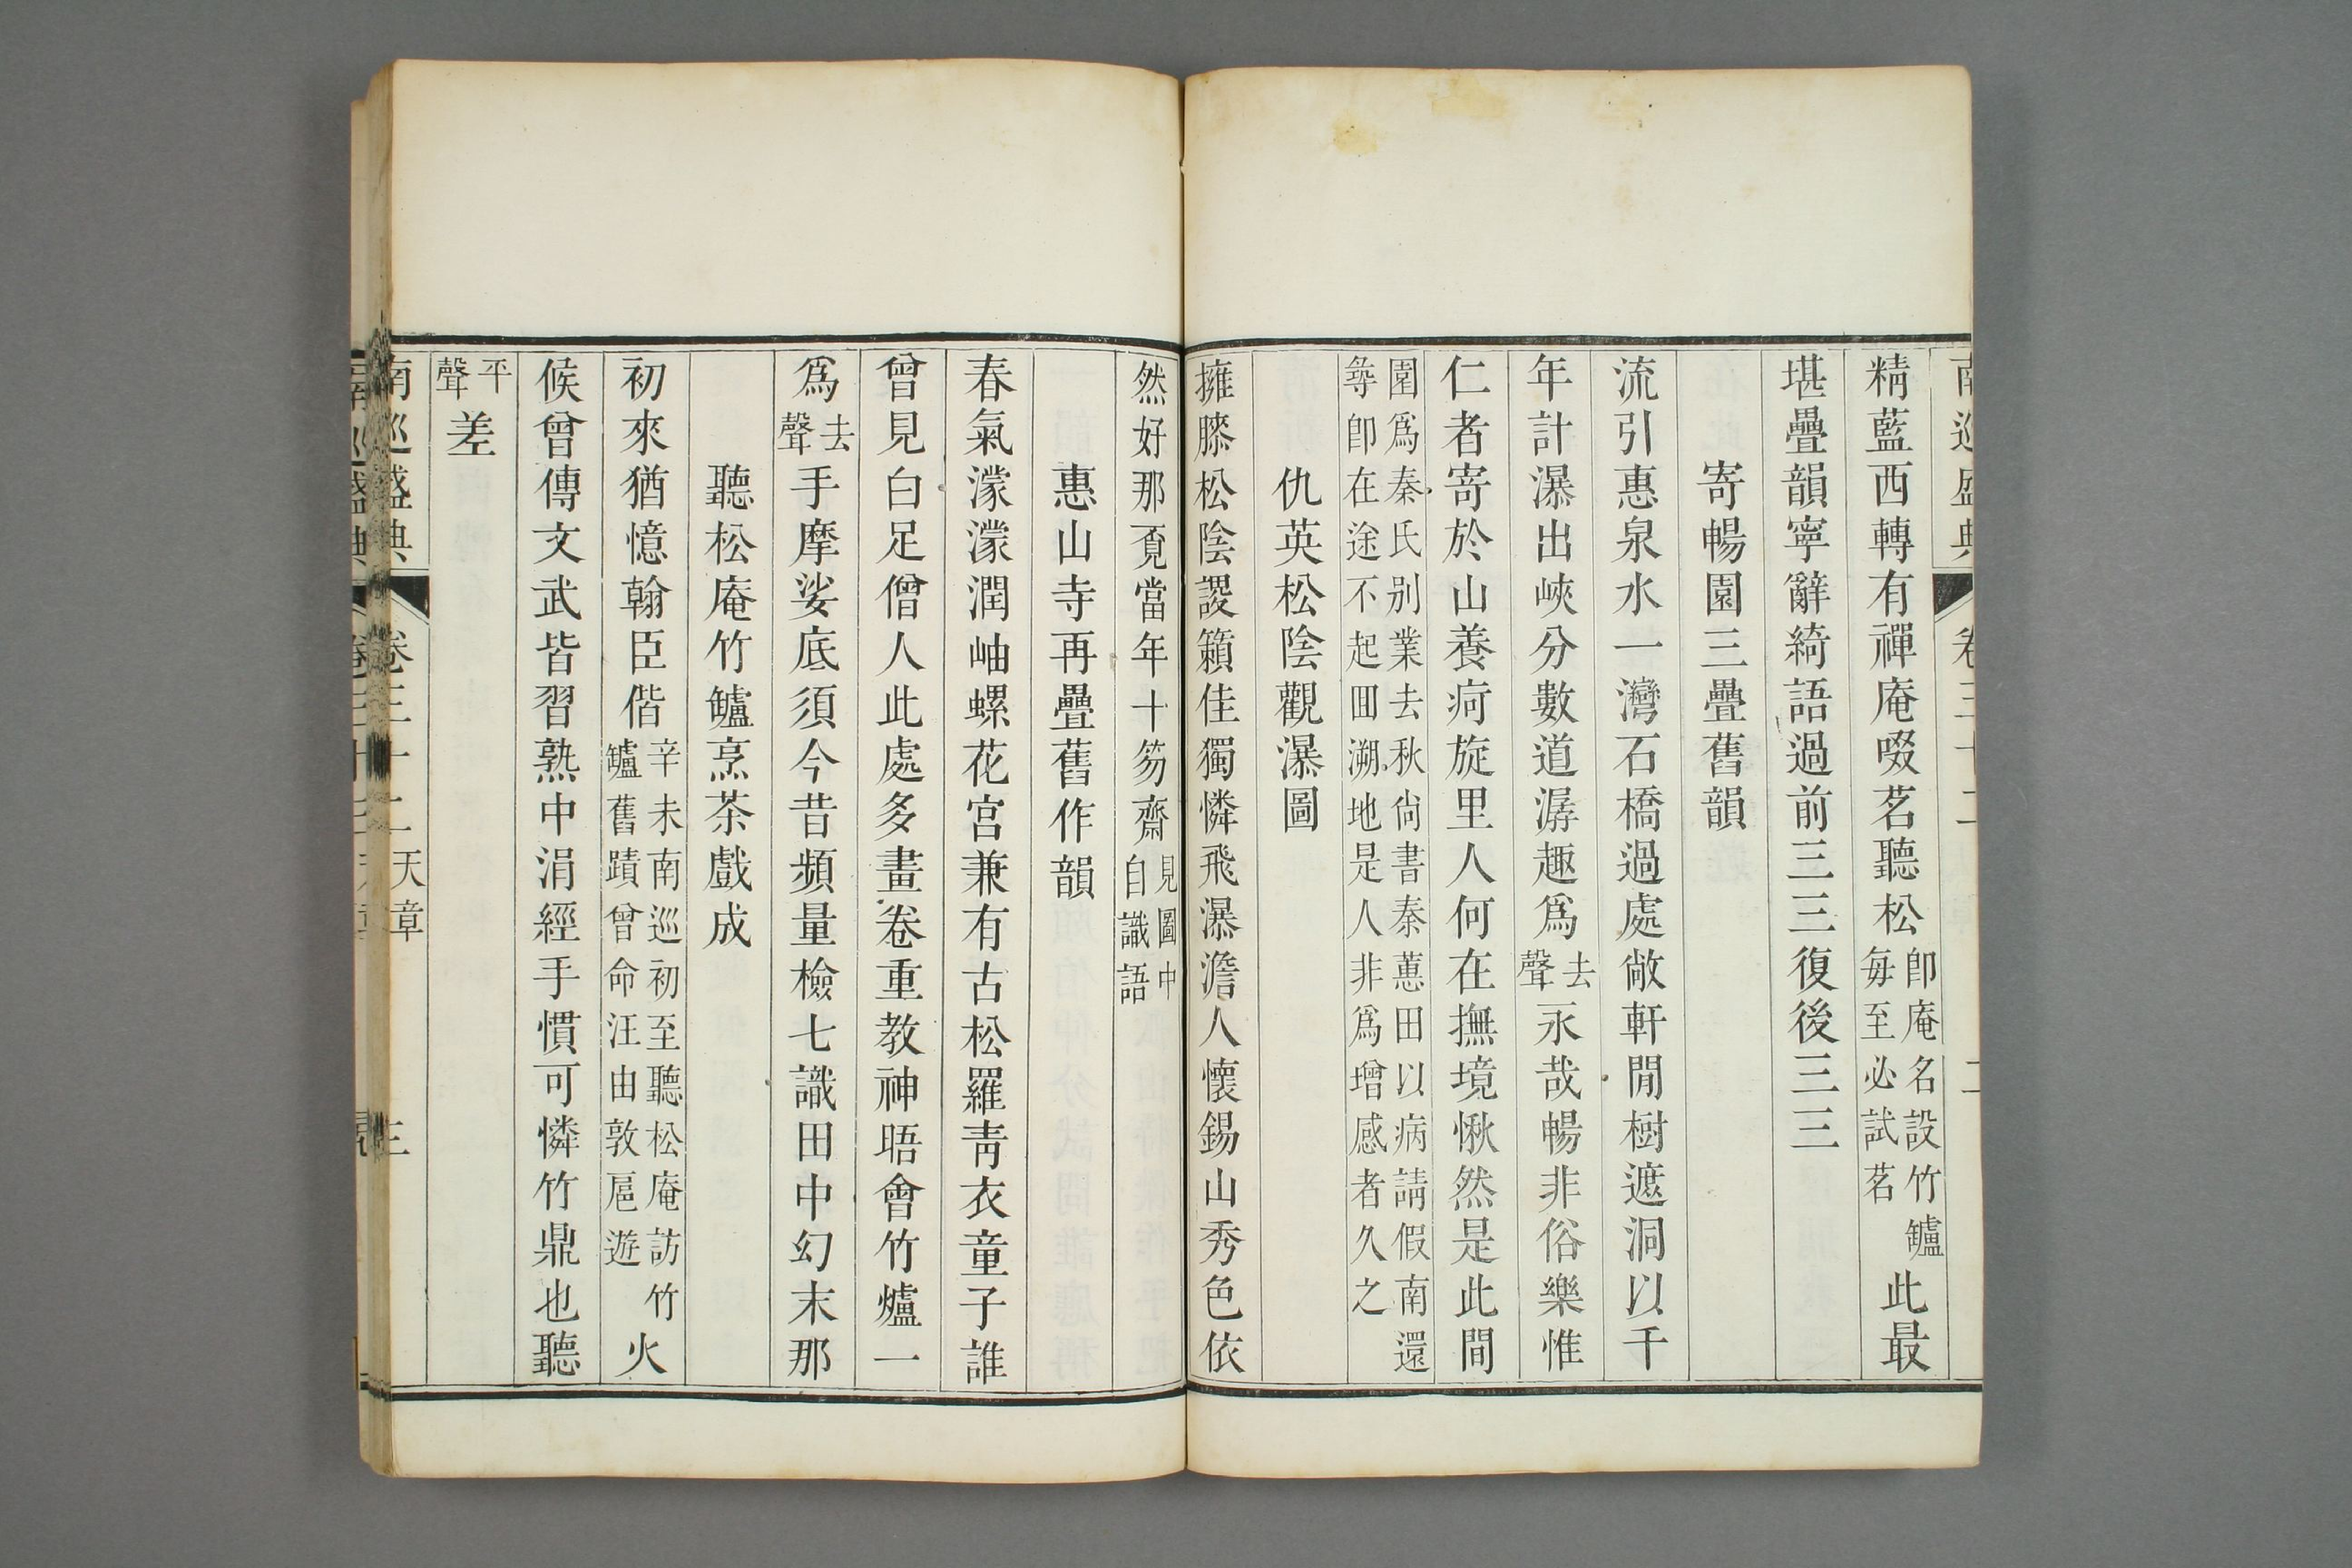 南巡盛典 卷三十二 二
精藍西轉有禪庵啜茗聽松卽庵名設竹鑪每至必試茗此最
堪疊韻寧辭綺語過前三三復後三三
寄暢園三疊舊韻
流引惠泉水一灣石橋過處敞軒閒樹遮洞以千
年計瀑出峽分數道潺趣爲去聲永哉暢非俗樂惟
仁者寄於山養疴旋里人何在撫境愀然是此間
園爲秦氏別業去秋尙書秦蕙田以病請假南還
尋卽在途不起囬溯地是人非爲增感者久之
仇英松陰觀瀑圖
擁膝松陰謖籟佳獨憐飛瀑澹人懷錫山秀色依
然好那覔當年十笏齋見圖中自識語
惠山寺再疊舊作韻
春氣濛濛潤岫螺花宮兼有古松羅靑衣童子誰
曾見白足僧人此處多畫卷重教神晤會竹爐一
爲去聲手摩娑底須今昔頻量檢七識田中幻末那
聽松庵竹鑪烹茶戲成
初來猶憶翰臣偕辛未南巡初至聽松庵訪竹鑪舊蹟曾命汪由敦扈遊火
候曾傳文武皆習熟中涓經手慣可憐竹鼎也聽
平聲差
南巡盛典 卷三十二 天章 三